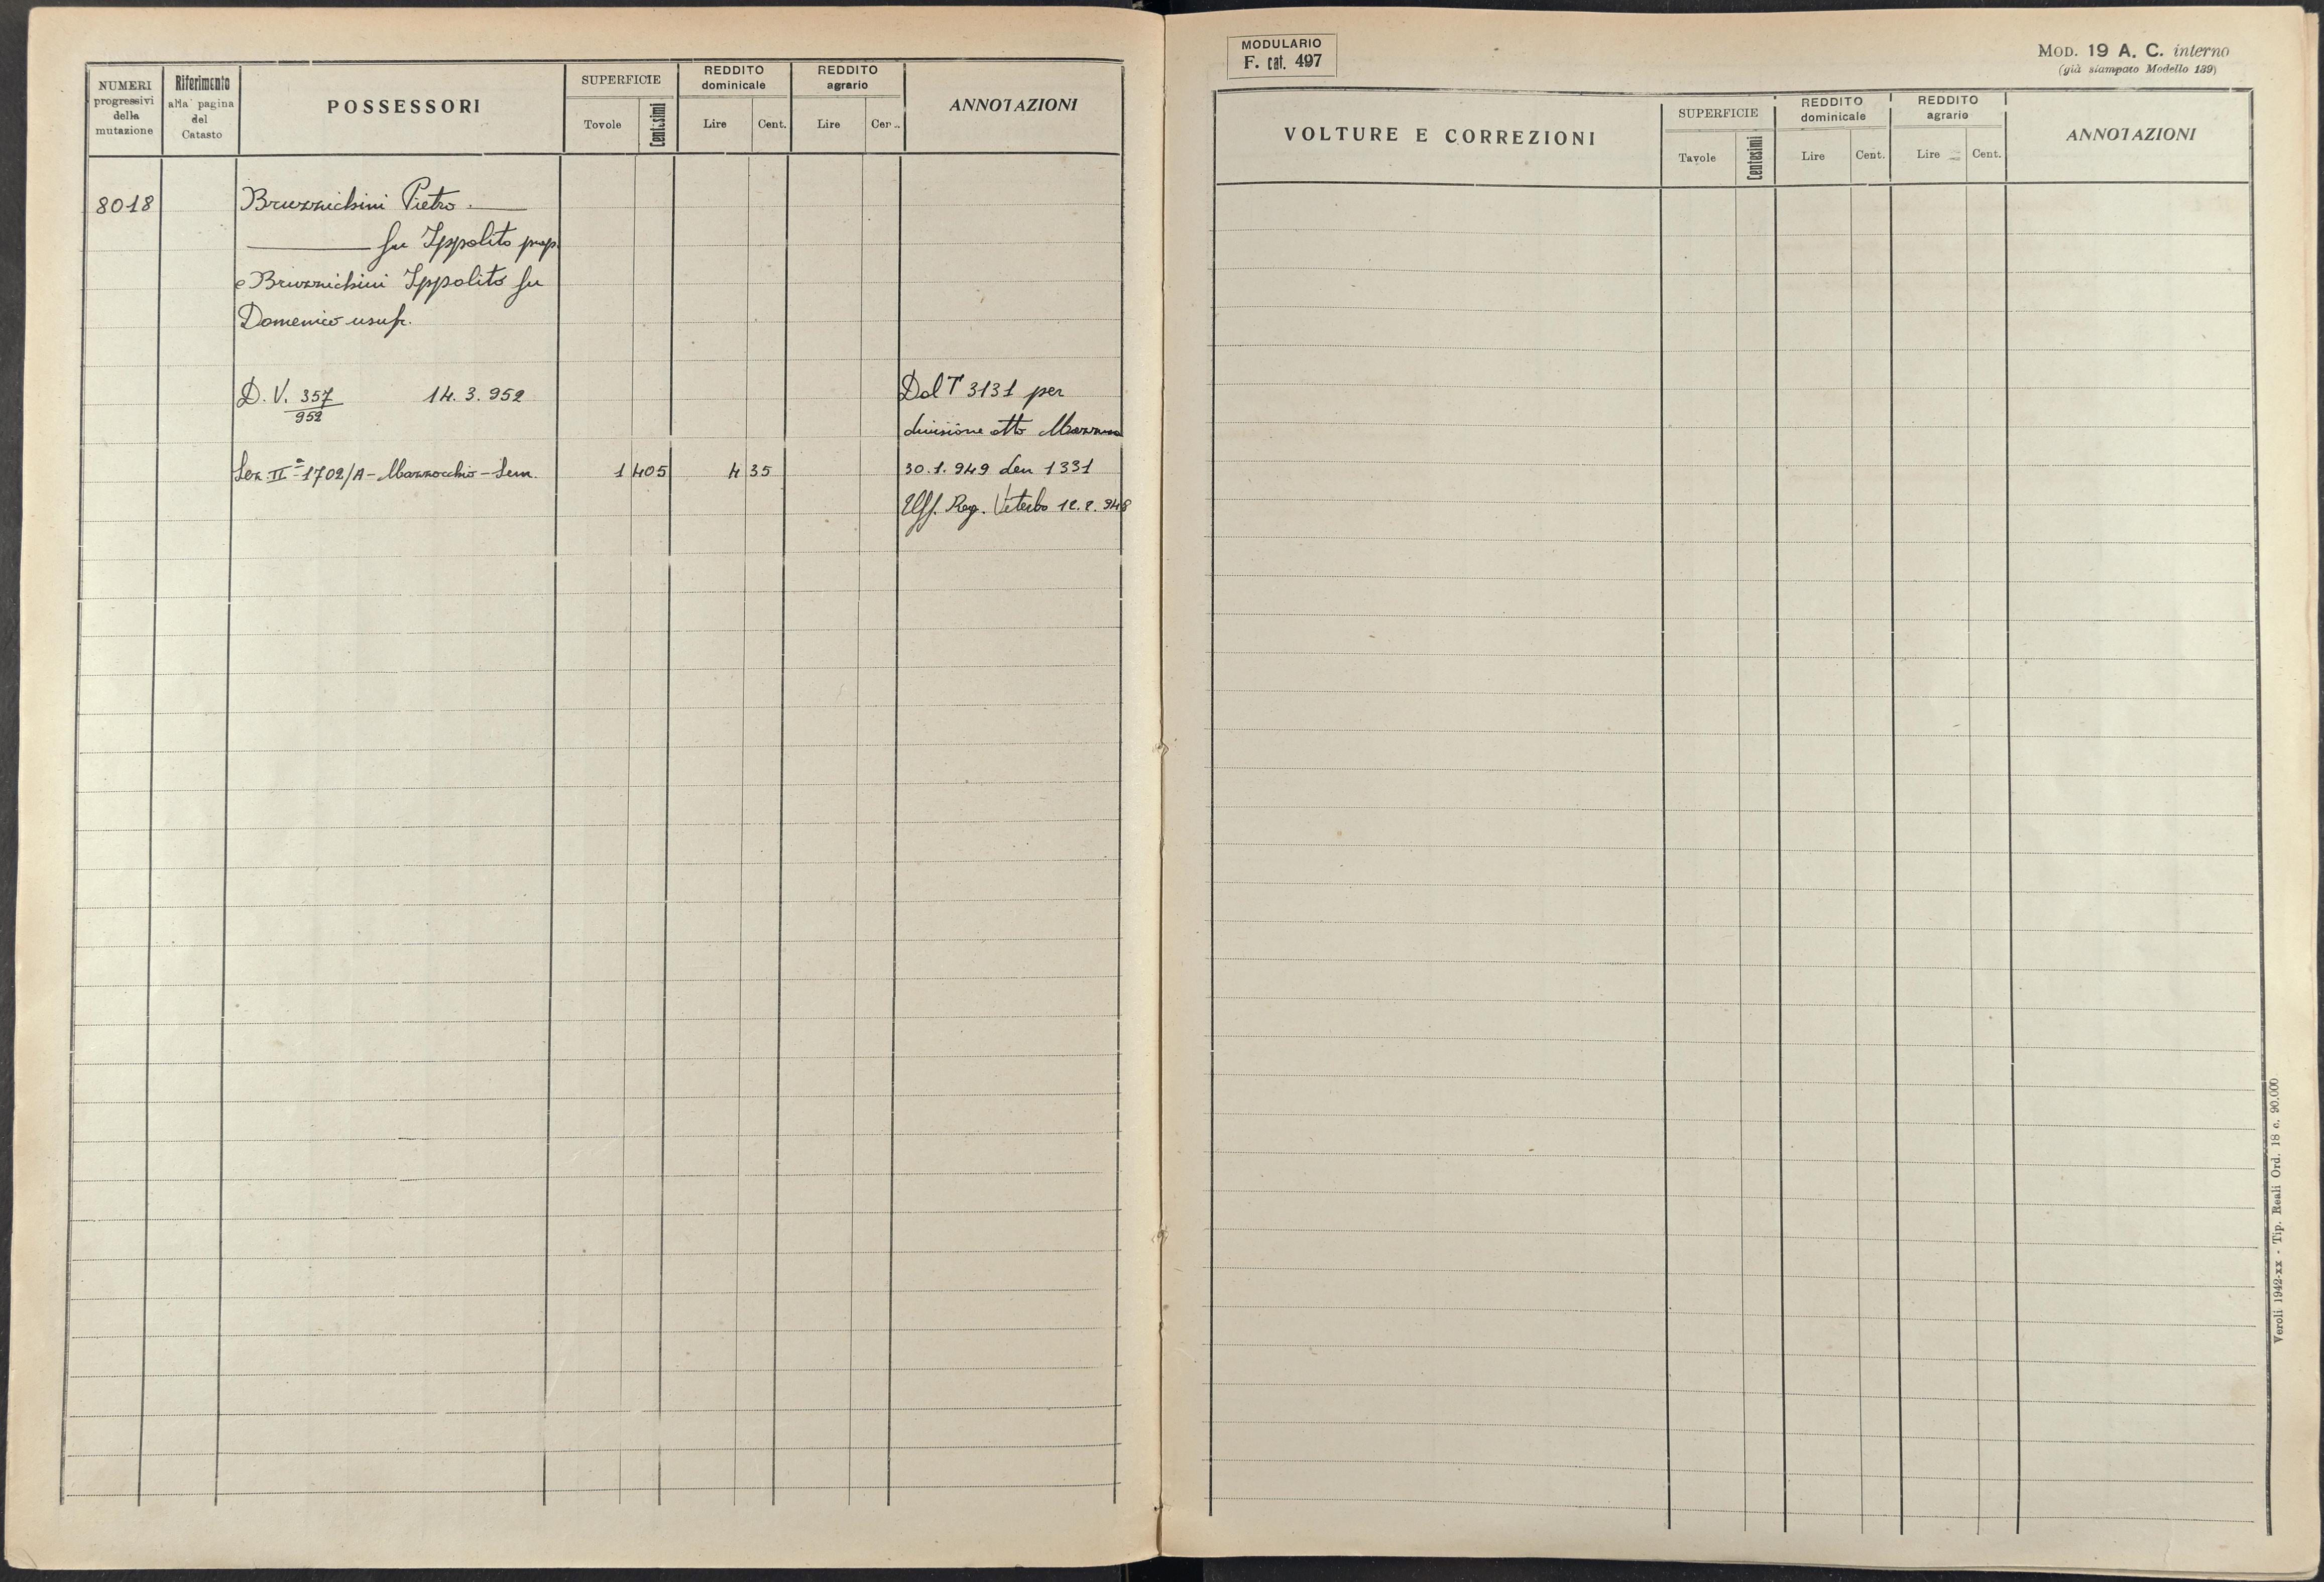 NUMERI
progressivi
della
mutazione
Riferimento
alla pagina
del
Catasto
POSSESSORI
SUPERFICIE
Tavole
Centesimi
REDDITO
dominicale
Lire
Cent.
REDDITO
agrario
Lire
Cen..
ANNOTAZIONI
8018
Bruzzichini Pietro.
fu Ippolito prop.
e Bruzzichini Ippolito fu
Domenico usufr.
D. V. 357 14. 3. 952
952
Dal T 3131 per
divisione atto
Sez. II a 1702/A - Mazzocchio - Sem. 1 405 4 35
30. 1. 949 den 1331
Uff. Reg. Viterbo 12. 2. 948
MODULARIO
F. cat. 497
MOD. 19 A. C. interno
(già stampato Modello 139)
VOLTURE E CORREZIONI
SUPERFICIE
Tavole
Centesimi
REDDITO
dominicale
Lire
Cent.
REDDITO
agrario
Lire
Cent.
ANNOTAZIONI
Veroli 1942-xx - Tip. Reali Ord. 18 c. 90.000